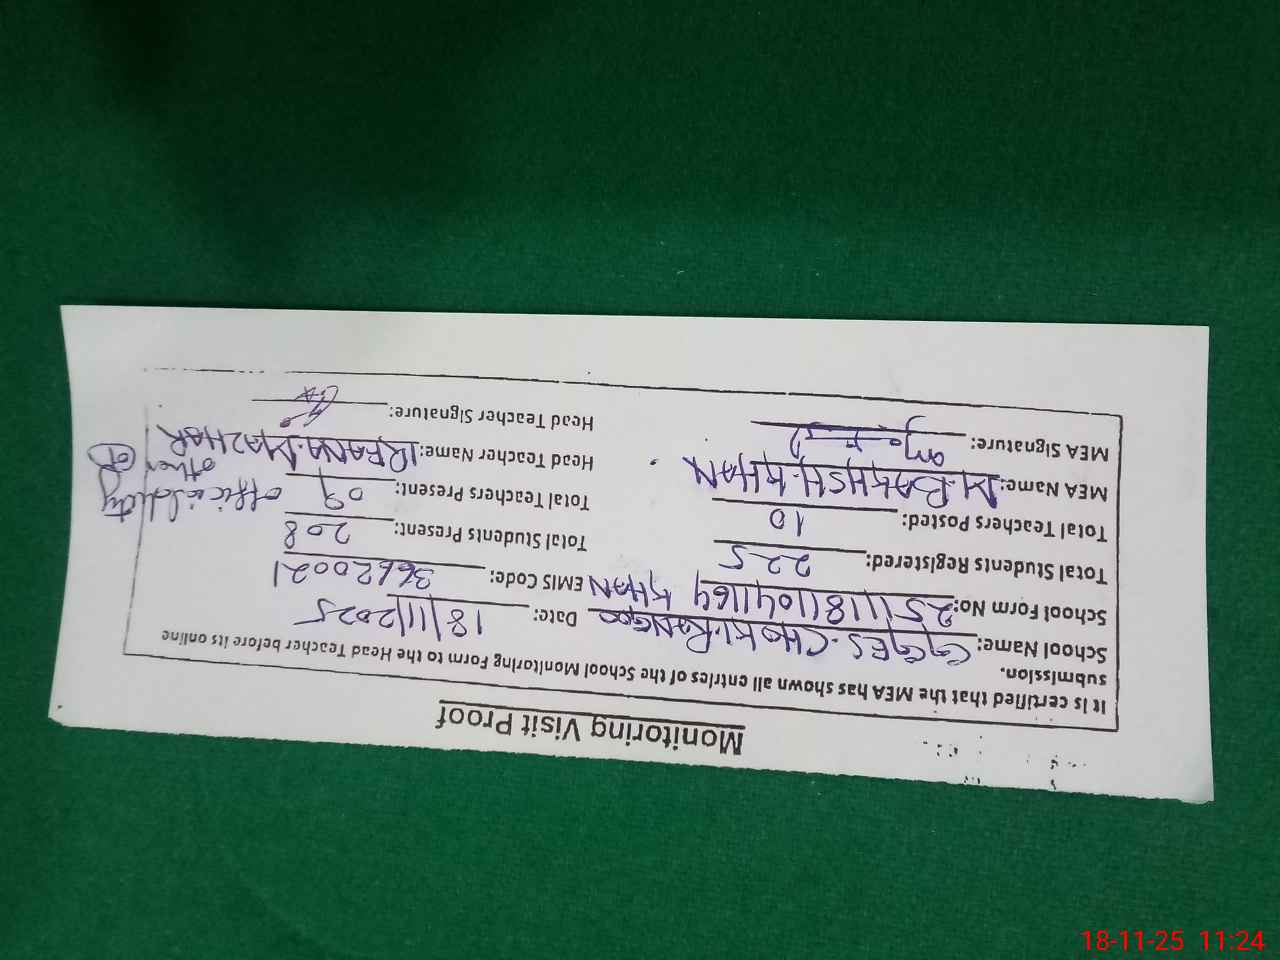 Monitoring Visit Proof
It is certified that the MEA has shown all entries of the School Monitoring Form to the Head Teacher before its online
submission.
School Name: GGES. CHOKI. RANGOO KHAN Date: 18/11/2025
School Form No: 251118110411164 EMIS Code: 36620021
Total Students Registered: 225 Total Students Present: 208
Total Teachers Posted: 10 Total Teachers Present: 09 official duty
other 01
MEA Name: M. BAKHSH. KHAN Head Teacher Name: IRFANA. MAZHAR
MEA Signature: Head Teacher Signature:
18-11-25 11:24